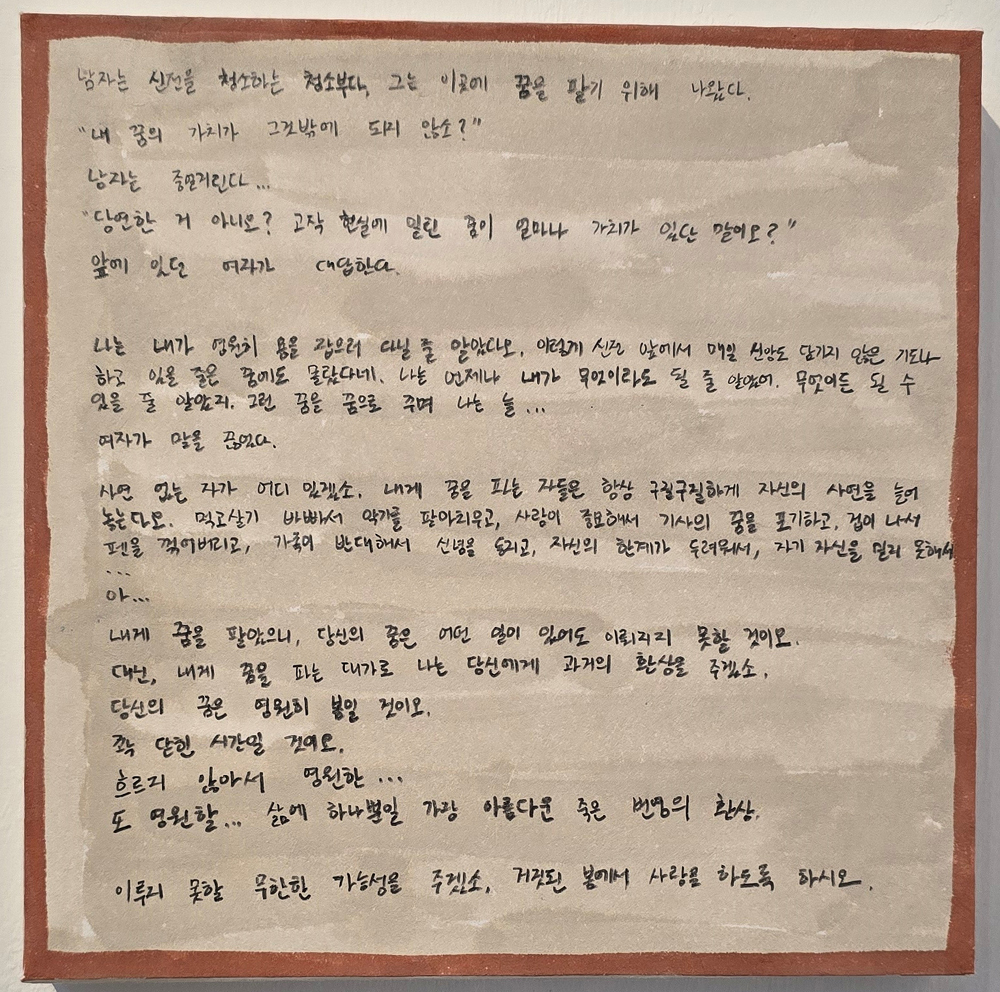 남자는 신전을 청소하는 청소부다, 그는 이곳에 꿈을 팔기 위해 나왔다.
"내 꿈의 가치가 그것밖에 되지 않소?"
남자는 중얼거린다...
"당연한 거 아니오? 고작 현실에 밀린 꿈이 얼마나 가치가 있단 말이오?"
앞에 있던 여자가 대답한다.
나는 내가 영원히 용을 잡으러 다닐 줄 알았다오. 이렇게 신전 앞에서 매일 신앙도 담기지 않은 기도나
하고 있을 줄은 꿈에도 몰랐다네. 나는 언제나 내가 무엇이라도 될 줄 알았어. 무엇이든 될 수
있을 줄 알았지. 그런 꿈을 꿈으로 주며 나는 늘...
여자가 말을 끊었다.
사연 없는 자가 어디 있겠소. 내게 꿈을 파는 자들은 항상 구질구질하게 자신의 사연을 늘어
놓는다오. 먹고살기 바빠서 악기를 팔아치우고, 사랑이 중요해서 기사의 꿈을 포기하고, 겁이 나서
펜을 꺾어버리고, 가족이 반대해서 신념을 숨기고, 자신의 한계가 두려워서, 자기 자신을 믿지 못해서
...
아...
내게 꿈을 팔았으니, 당신의 꿈은 어떤 일이 있어도 이뤄지지 못할 것이오.
대신, 내게 꿈을 파는 대가로 나는 당신에게 과거의 환상을 주겠소.
당신의 꿈은 영원히 봄일 것이오.
꽉 닫힌 시간일 것이오.
흐르지 않아서 영원한...
또 영원할... 삶에 하나뿐일 가장 아름다운 죽은 번영의 환상.
이루지 못할 무한한 가능성을 주겠소, 거짓된 봄에서 사랑을 하도록 하시오.